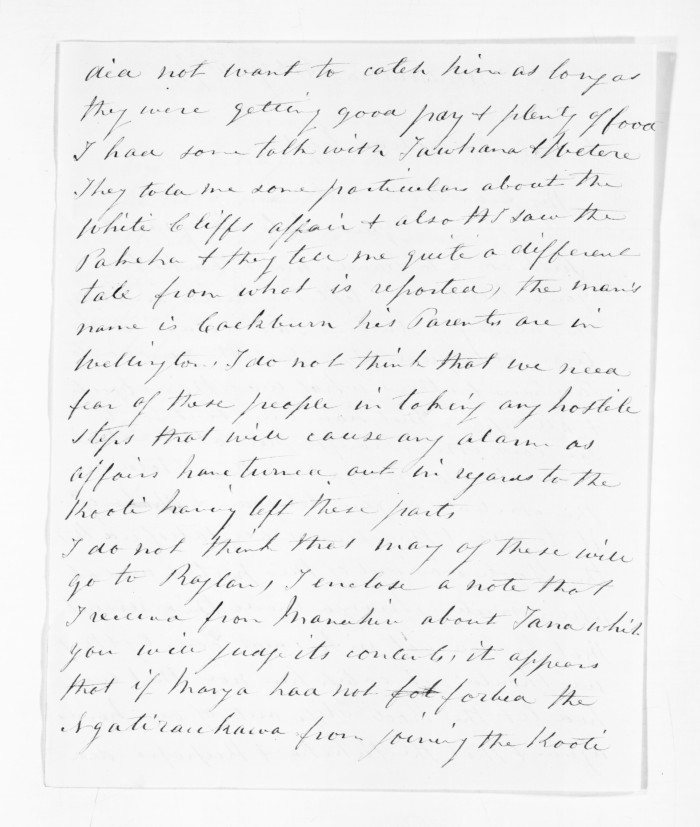 did not want to catch him as long as
they were getting good pay & plenty of food
I had some talk with Tawhana &
They told me some particulars about the
White Cliffs affair & also saw the
Pakeha & they tell me quite a different
tale from what is reported, the man's
name is Cackburn his Parents are in
Wellington, I do not think that we need
fear of these people in taking any hostile
steps that will cause any alarm as
affairs have turned out in regards to the
Kooti having left these parts
I do not think that many of these will
go to Raglan, I enclose a note that
I received from Manahin about Tana which
you will judge its contents, it appears
that if Manga had not fot forbid the
Ngatiraukawa from joining the Kooti